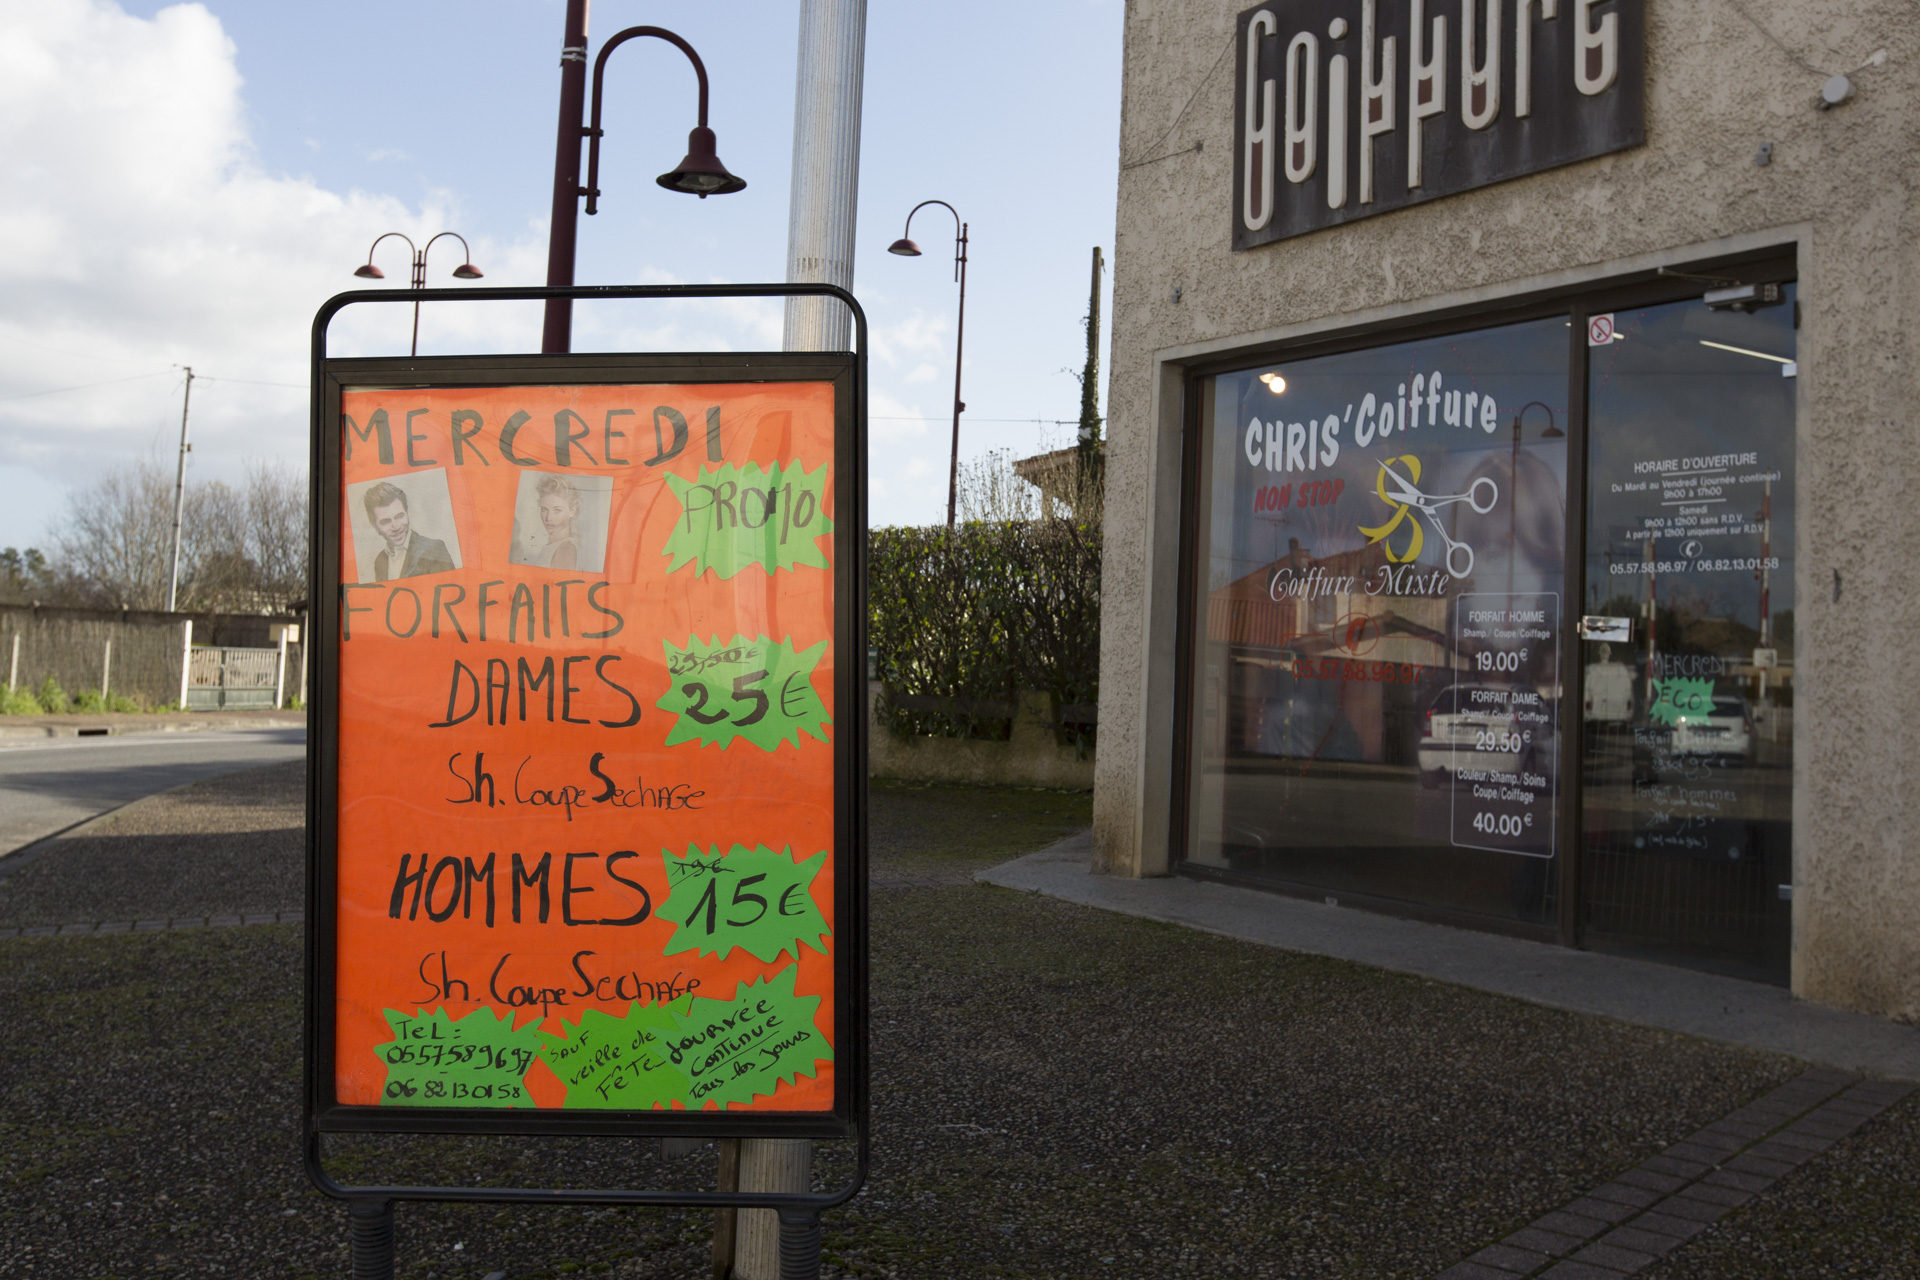 Coiffure
MERCREDI
PROMO
FORFAITS
DAMES
29,50€
25€
Sh. Coupe Sechage
HOMMES
19€
15€
Sh. Coupe Sechage
TeL:
0557589697
0682130158
SAUF
veille de
FÊTE
JOURNÉE
CONTINUE
Tous les Jours
CHRIS'Coiffure
NON STOP
Coiffure Mixte
05.57.58.96.97
FORFAIT HOMME
Shamp./ Coupe/Coiffage
19.00€
FORFAIT DAME
Shamp./ Coupe/Coiffage
29.50€
Couleur/Shamp./Soins
Coupe/Coiffage
40.00€
HORAIRE D'OUVERTURE
Du Mardi au Vendredi (journée continue)
9h00 à 17h00
Samedi
9h00 à 12h00 sans R.D.V.
A partir de 12h00 uniquement sur R.D.V.
05.57.58.96.97 / 06.82.13.01.58
MERCREDI
ECO
Forfait
Forfait hommes
15